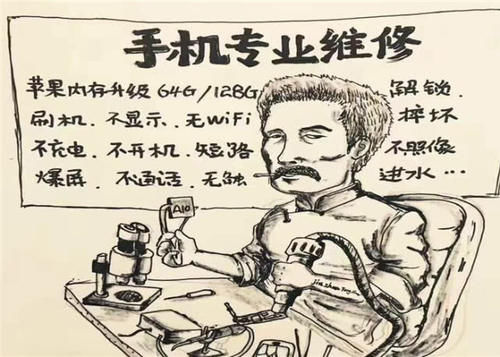 手机专业维修
苹果内存升级 64G/128G 解锁
刷机.不显示.无WiFi 摔坏
不充电.不开机.短路 不照像
爆屏.不通话.无触 进水…
A10